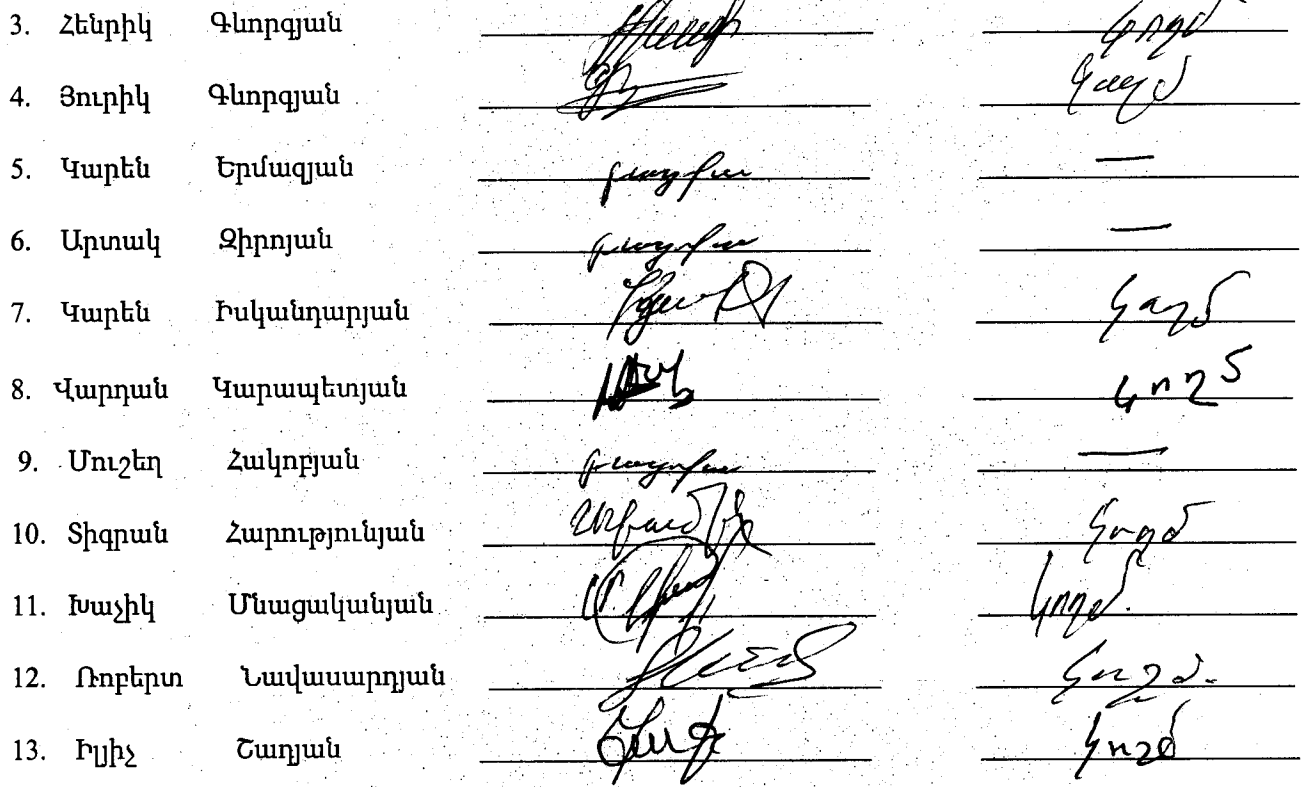 3. Հենրիկ Գևորգյան կողմ
4. Յուրիկ Գևորգյան կողմ
5. Կարեն Երմազյան բացակա —
6. Արտակ Զիրոյան բացակա —
7. Կարեն Իսկանդարյան կողմ
8. Վարդան Կարապետյան կողմ
9. Մուշեղ Հակոբյան բացակա —
10. Տիգրան Հարությունյան կողմ
11. Խաչիկ Մնացականյան կողմ.
12. Ռոբերտ Նավասարդյան կողմ.
13. Իլյիչ Շադյան կողմ